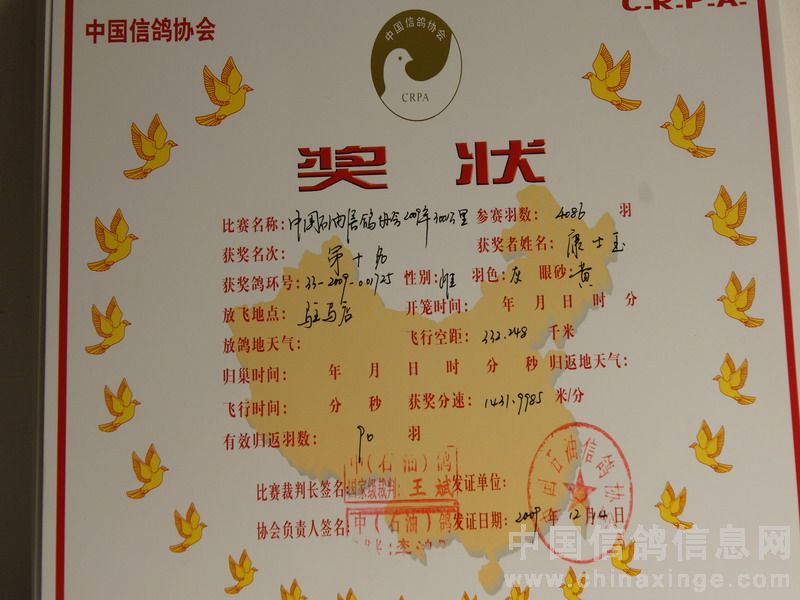 中国信鸽协会
C.R.P.A.
中国信鸽协会
CRPA
奖状
比赛名称：中国石油信鸽协会2009年300公里 参赛羽数：4086 羽
获奖名次：第十名 获奖者姓名：康士玉
获奖鸽环号：33-2009-001725 性别：雄 羽色：灰 眼砂：黄
放飞地点：驻马店 开笼时间： 年 月 日 时 分
放鸽地天气： 飞行空距：332.248 千米
归巢时间： 年 月 日 时 分 秒 归返地天气：
飞行时间： 分 秒 获奖分速：1431.9985 米/分
有效归返羽数：90 羽
中（石油）鸽
比赛裁判长签名：国家级裁判：王斌 发证单位：
协会负责人签名：中（石油）鸽 发证日期：2009年12月4日
国石油信鸽协会
中国信鸽信息网
www.chinaxinge.com